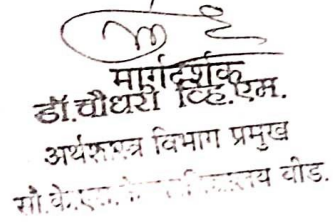 मार्गदर्शक
डॉ.चौधरी व्हि.एम.
अर्थशास्त्र विभाग प्रमुख
सौ.के.एस.के. बीड.